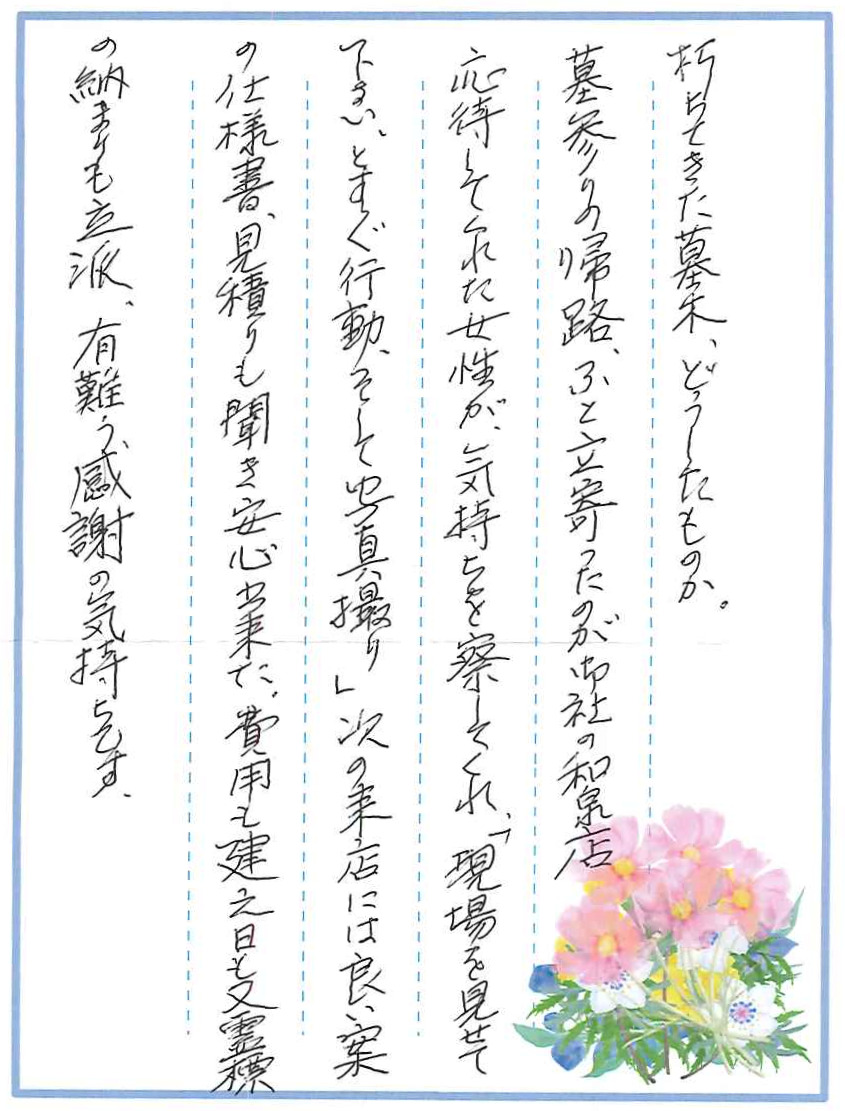 朽ちてきた墓木、どうしたものか。
墓参りの帰路、ふと立寄ったのが御社の和泉店
応待して呉れた女性が、気持ちを察してくれ、「現場を見せて
下さい、とすぐ行動、そして写真撮り」次の来店には良い案
の仕様書、見積りも聞き安心出来た、費用も建之日も又霊標
の納まりも立派、有難う、感謝の気持ちです、